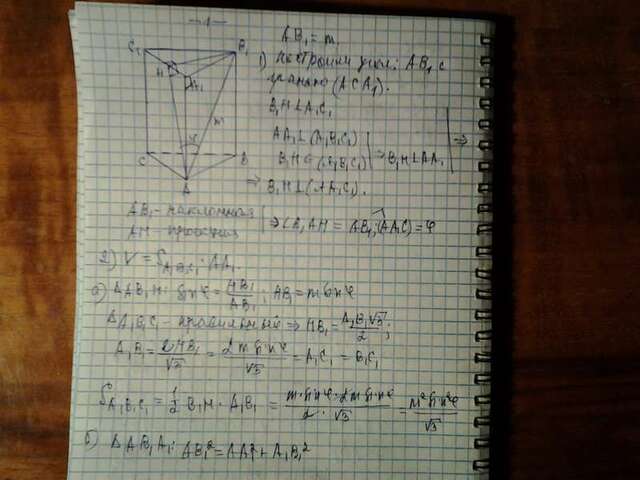 -1-
AB₁ = m.
1) Построим угол: AB₁ с
гранью (ACA₁).
B₁H ⊥ A₁C₁
AA₁ ⊥ (A₁B₁C₁)
B₁H ⊂ (A₁B₁C₁) | ⇒ B₁H ⊥ AA₁ | ⇒
⇒ B₁H ⊥ (AA₁C₁).
C₁ B₁ H A₁ m φ C B A
AB₁ - наклонная
AH - проекция | ⇒ ∠B₁AH = (AB₁; (AA₁C)) = φ
2) V = S_A₁B₁C₁ · AA₁
а) ΔAB₁H: sin φ = HB₁/AB₁; HB₁ = m sin φ
ΔA₁B₁C₁ - правильный ⇒ HB₁ = A₁B₁√3/2;
A₁B₁ = 2HB₁/√3 = 2m sin φ/√3 = A₁C₁ = B₁C₁
S_A₁B₁C₁ = 1/2 B₁H · A₁B₁ = m·sin φ·2m sin φ/2·√3 = m² sin² φ/√3
б) ΔAB₁A₁: AB₁² = AA₁² + A₁B₁²